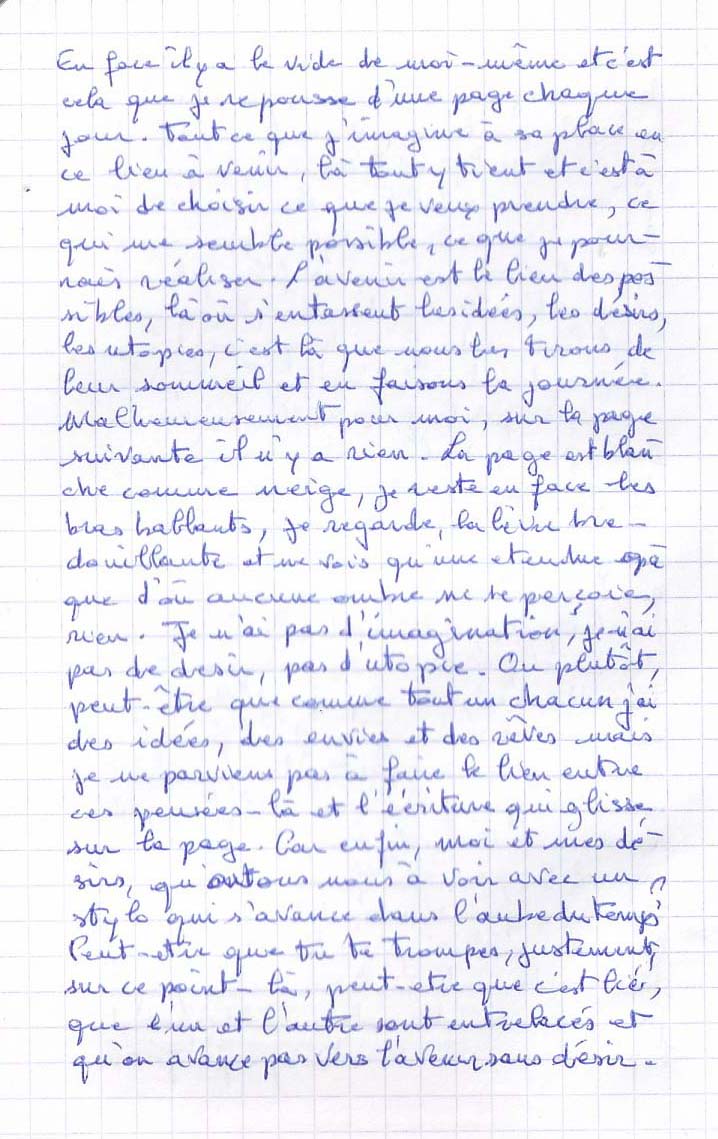 En face il y a le vide de moi-même et c'est
cela que je repousse d'une page chaque
jour. Tout ce que j'imagine à sa place en
ce lieu à venir, là tout y tient et c'est à
moi de choisir ce que je veux prendre, ce
qui me semble possible, ce que je pour-
rais réaliser. L'avenir est le lieu des pos
sibles, là où s'entassent les idées, les désirs,
les utopies, c'est là que nous les tirons de
leur sommeil et en faisons la journée.
Malheureusement pour moi, sur la page
suivante il n'y a rien. La page est blan
che comme neige, je reste en face les
bras ballants, je regarde, la lèvre bre-
douillante et ne vois qu'une etendue opa
que d'où aucune ombre ne se perçoie,
rien. Je n'ai pas d'imagination, je n'ai
pas de desir, pas d'utopie. Ou plutôt,
peut-être que comme tout un chacun j'ai
des idées, des envies et des rêves mais
je ne parviens pas à faire le lien entre
ces pensées-là et l'écriture qui glisse
sur la page. Car enfin, moi et mes dé-
sirs, qu'avons nous à voir avec un
stylo qui s'avance dans l'aube du temps?
Peut-etre que tu te trompes, justement,
sur ce point-là, peut-etre que c'est lié,
que l'un et l'autre sont entrelacés et
qu'on avance pas vers l'avenir sans désir.